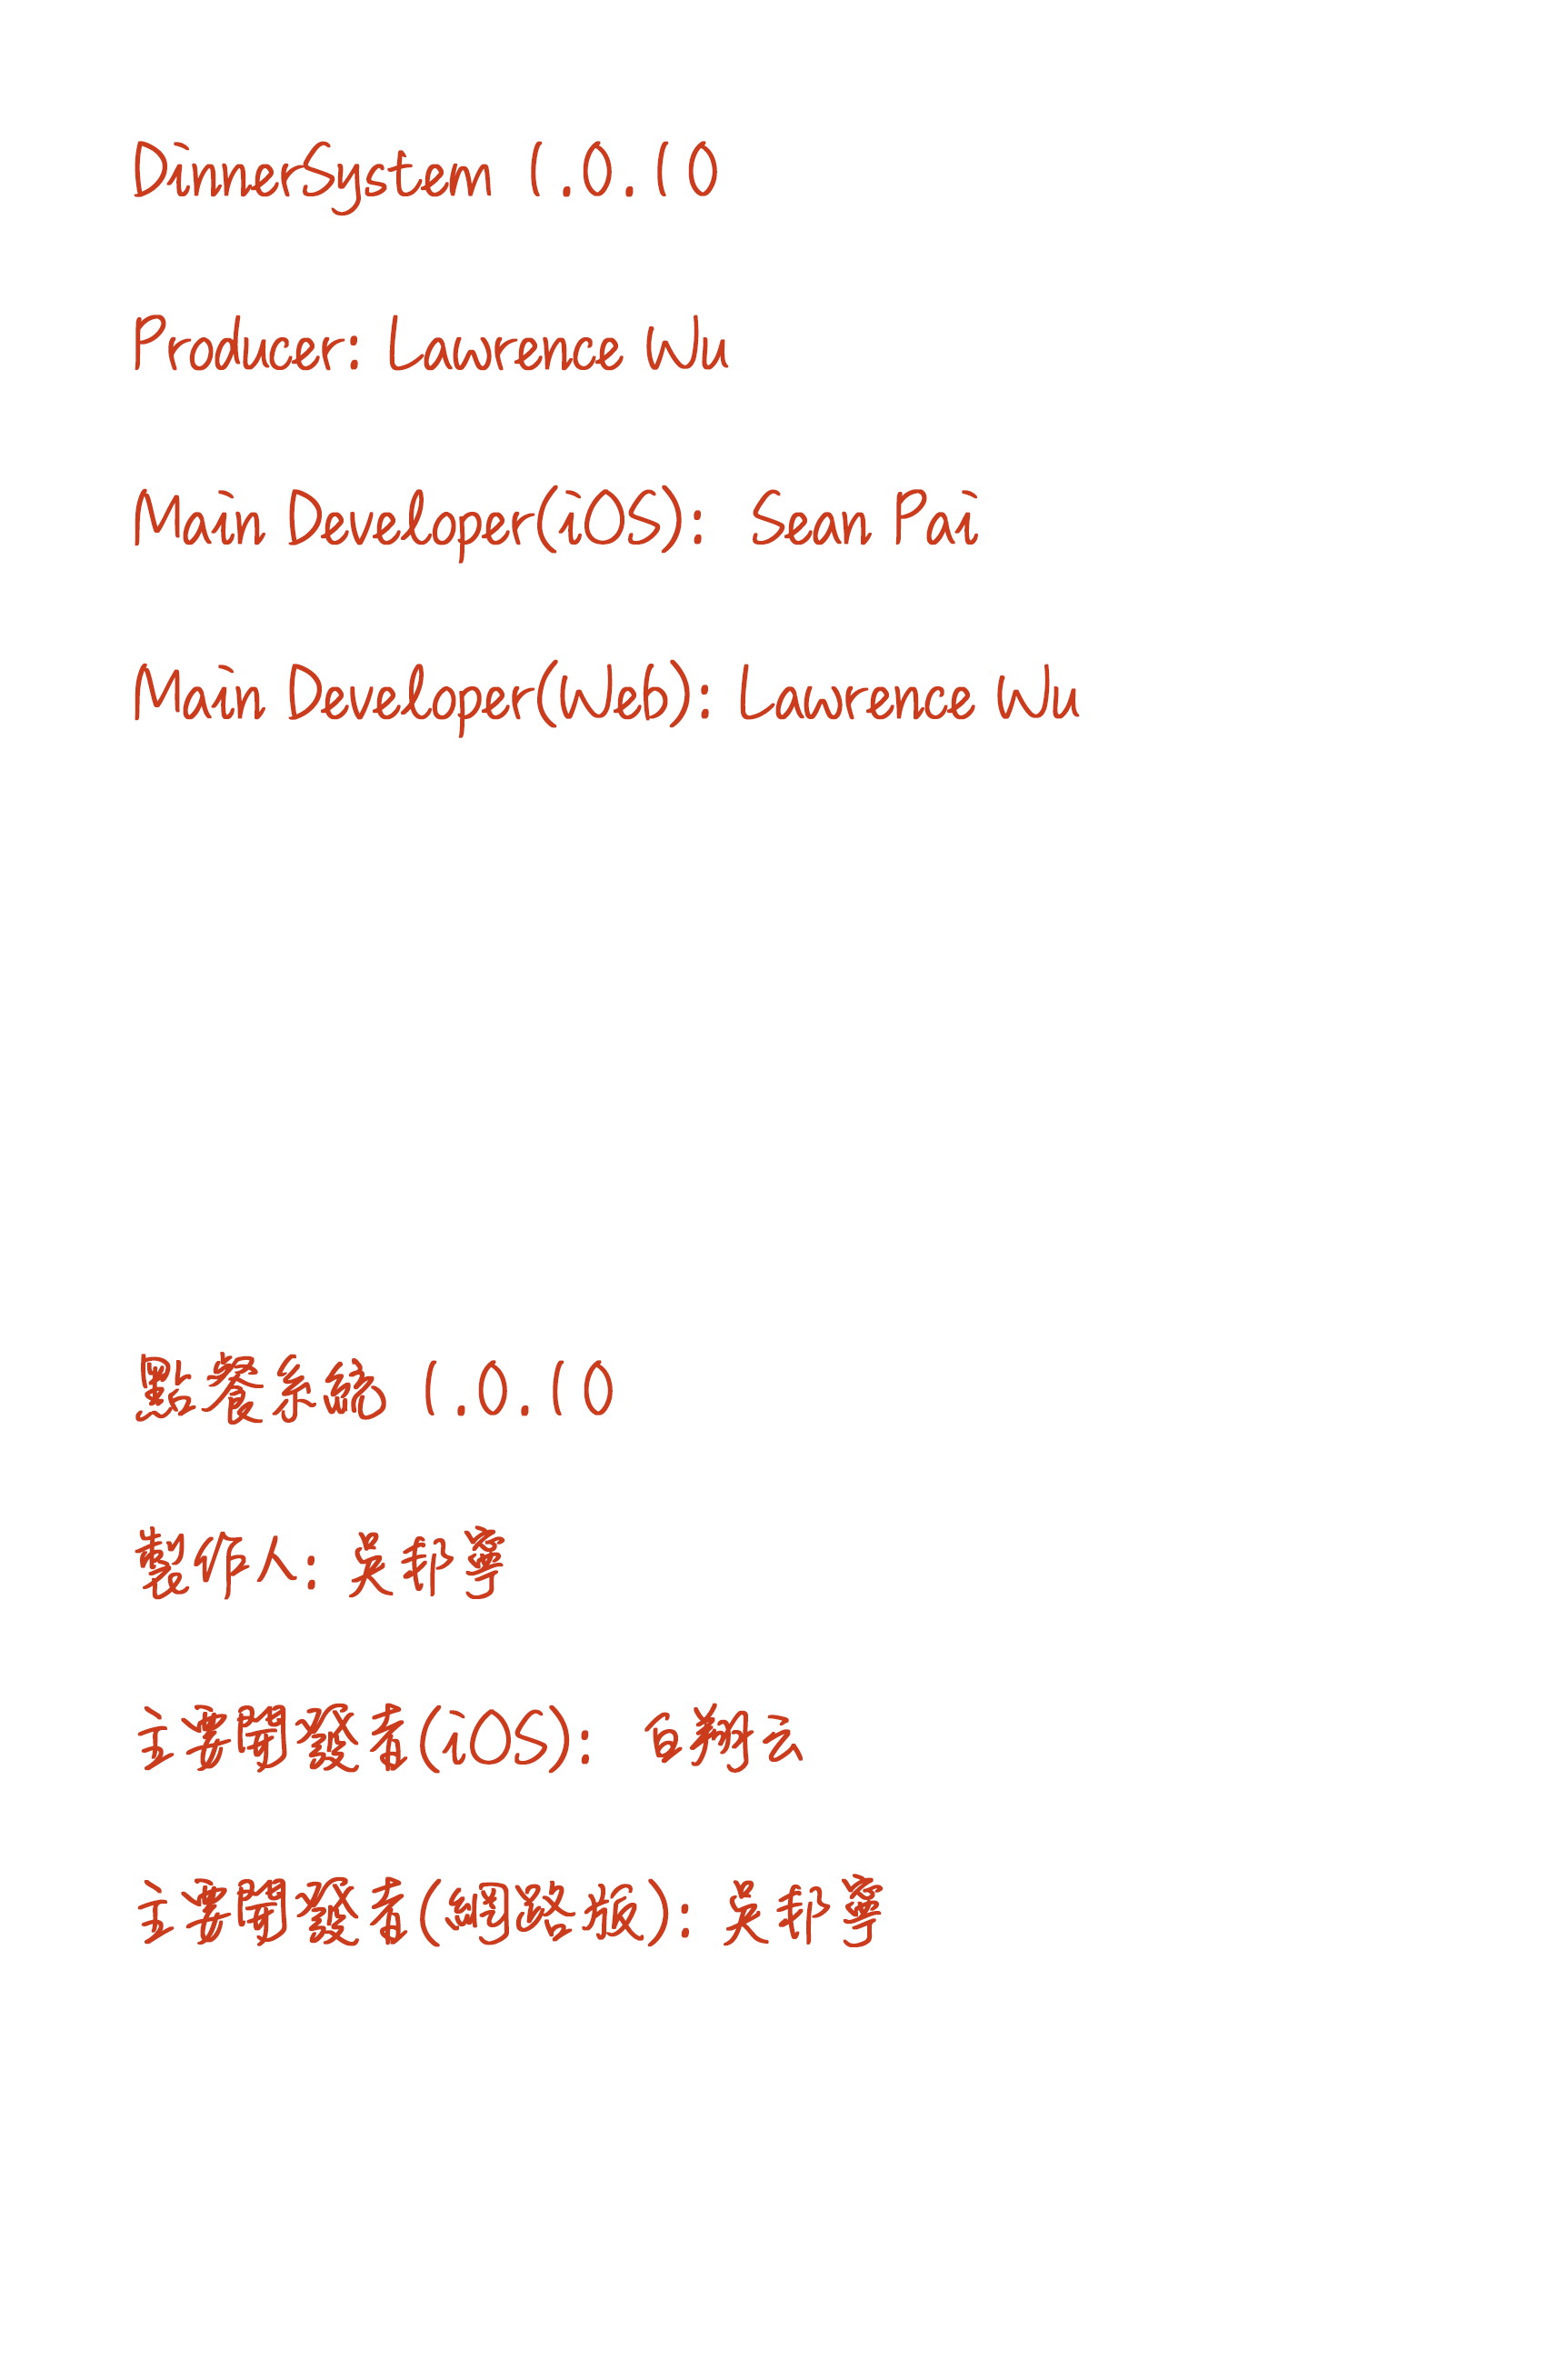 DinnerSystem 1.0.10
Producer: Lawrence Wu
Main Developer(iOS): Sean Pai
Main Developer(Web): Lawrence Wu
點餐系統 1.0.10
製作人: 吳邦寧
主要開發者(iOS): 白翔云
主要開發者(網路版): 吳邦寧